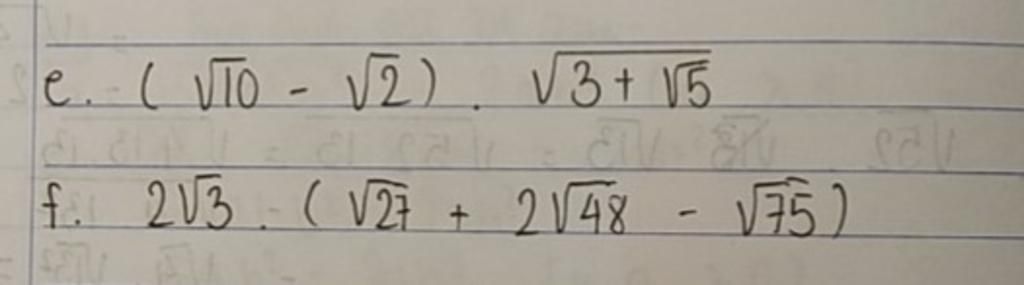 e. (√10 - √2) . √(3 + √5)
f. 2√3 . (√27 + 2√48 - √75)